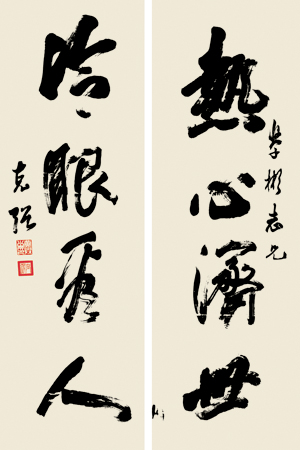 熱心濟世
學彬志兄
冷眼看人
克强